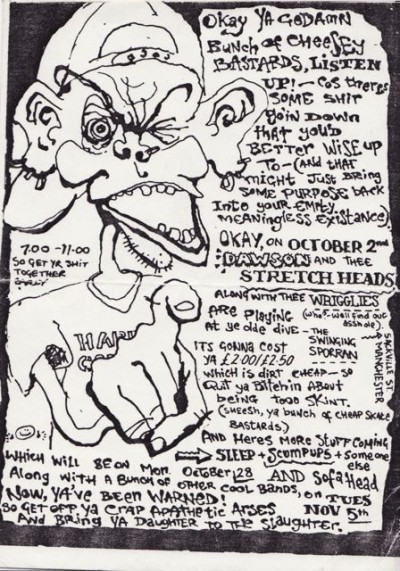 Okay YA GODAMN
BUNCH OF CHEESEY
BASTARDS, LISTEN
UP! - COS theres
SOME SHIT
GOIN DOWN
that YOU'D
BETTER WISE UP
TO - (And THAT
MIGHT JUST BRING
SOME PURPOSE back
INTO your EMPTY
MEANINGLESS EXISTANCE)
OKAY, ON OCTOBER 2nd
DAWSON AND THEE
STRETCH HEADS
ALONG WITH THEE WRIGGLIES
(who? - well find out
asshole).
ARE PlAYING
AT ye olde dive - THE
SWINGING
SPORRAN
SACKVILLE ST
MANCHESTER
ITS GONNA COST
YA £2.00/£2.50
which is DIRT CHEAP - SO
QUIT YA BITCHIN About
being tooo SKINT.
(SHEESH, ya bunch of CHEAP SKATE
BASTARDS)
AND HERES MORE STUFF COMING
SLEEP + SCUMPUPS + someone
else
WHICH WILL BE ON MON. OCTOBER 28
Along WITH A BUNCH OF OTHER COOL BANDS,
AND SofaHead
on TUES
NOV 5th
NOW, YA'VE BEEN WARNED!
SO GET OFF YA CRAP APATHETIC ARSES
And BRING YA DAUGHTER TO THE SLAUGHTER.
7.00 - 11.00
SO GET YR SHIT
TOGETHER
HARD